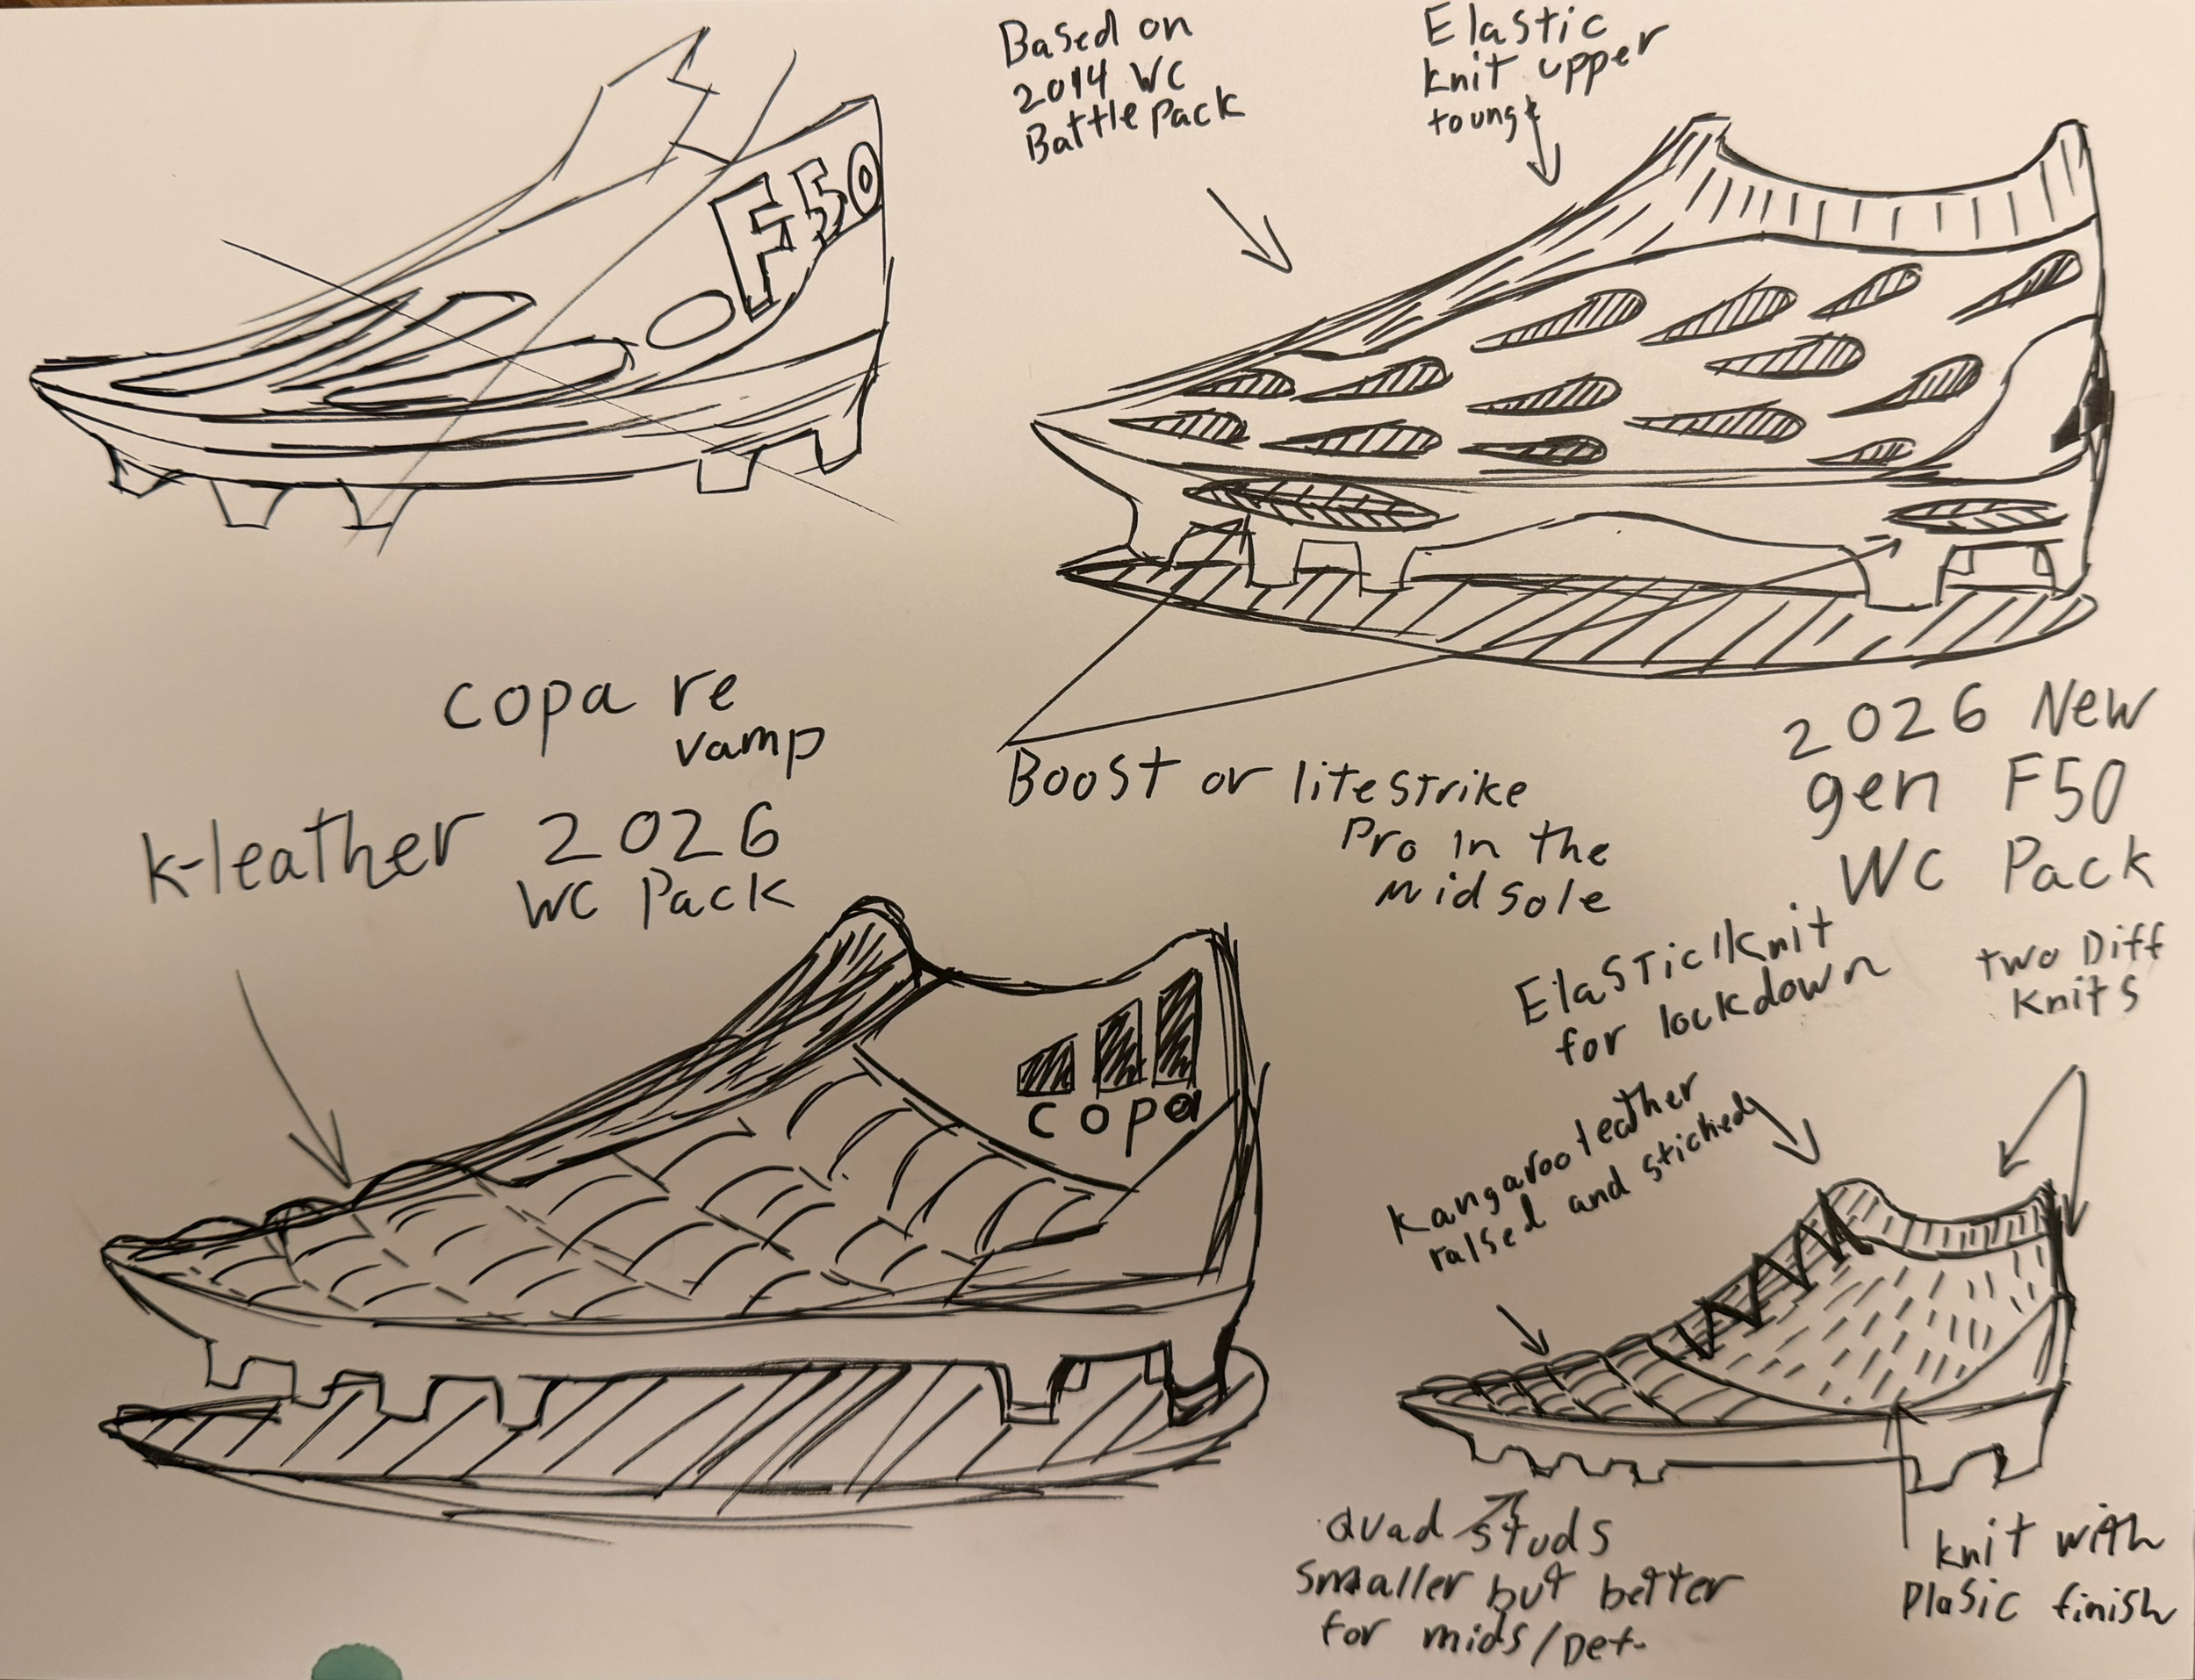 F50
Based on
2014 WC
Battle Pack
Elastic
knit upper
tounge
copa re
vamp
k-leather 2026
WC Pack
Boost or litestrike
Pro in the
midsole
2026 New
gen F50
WC Pack
Elastic/knit
for lockdown
two Diff
knits
copa
kangaroo leather
raised and stiched
Quad studs
smaller but better
for mids/Def-
knit with
Plasic finish